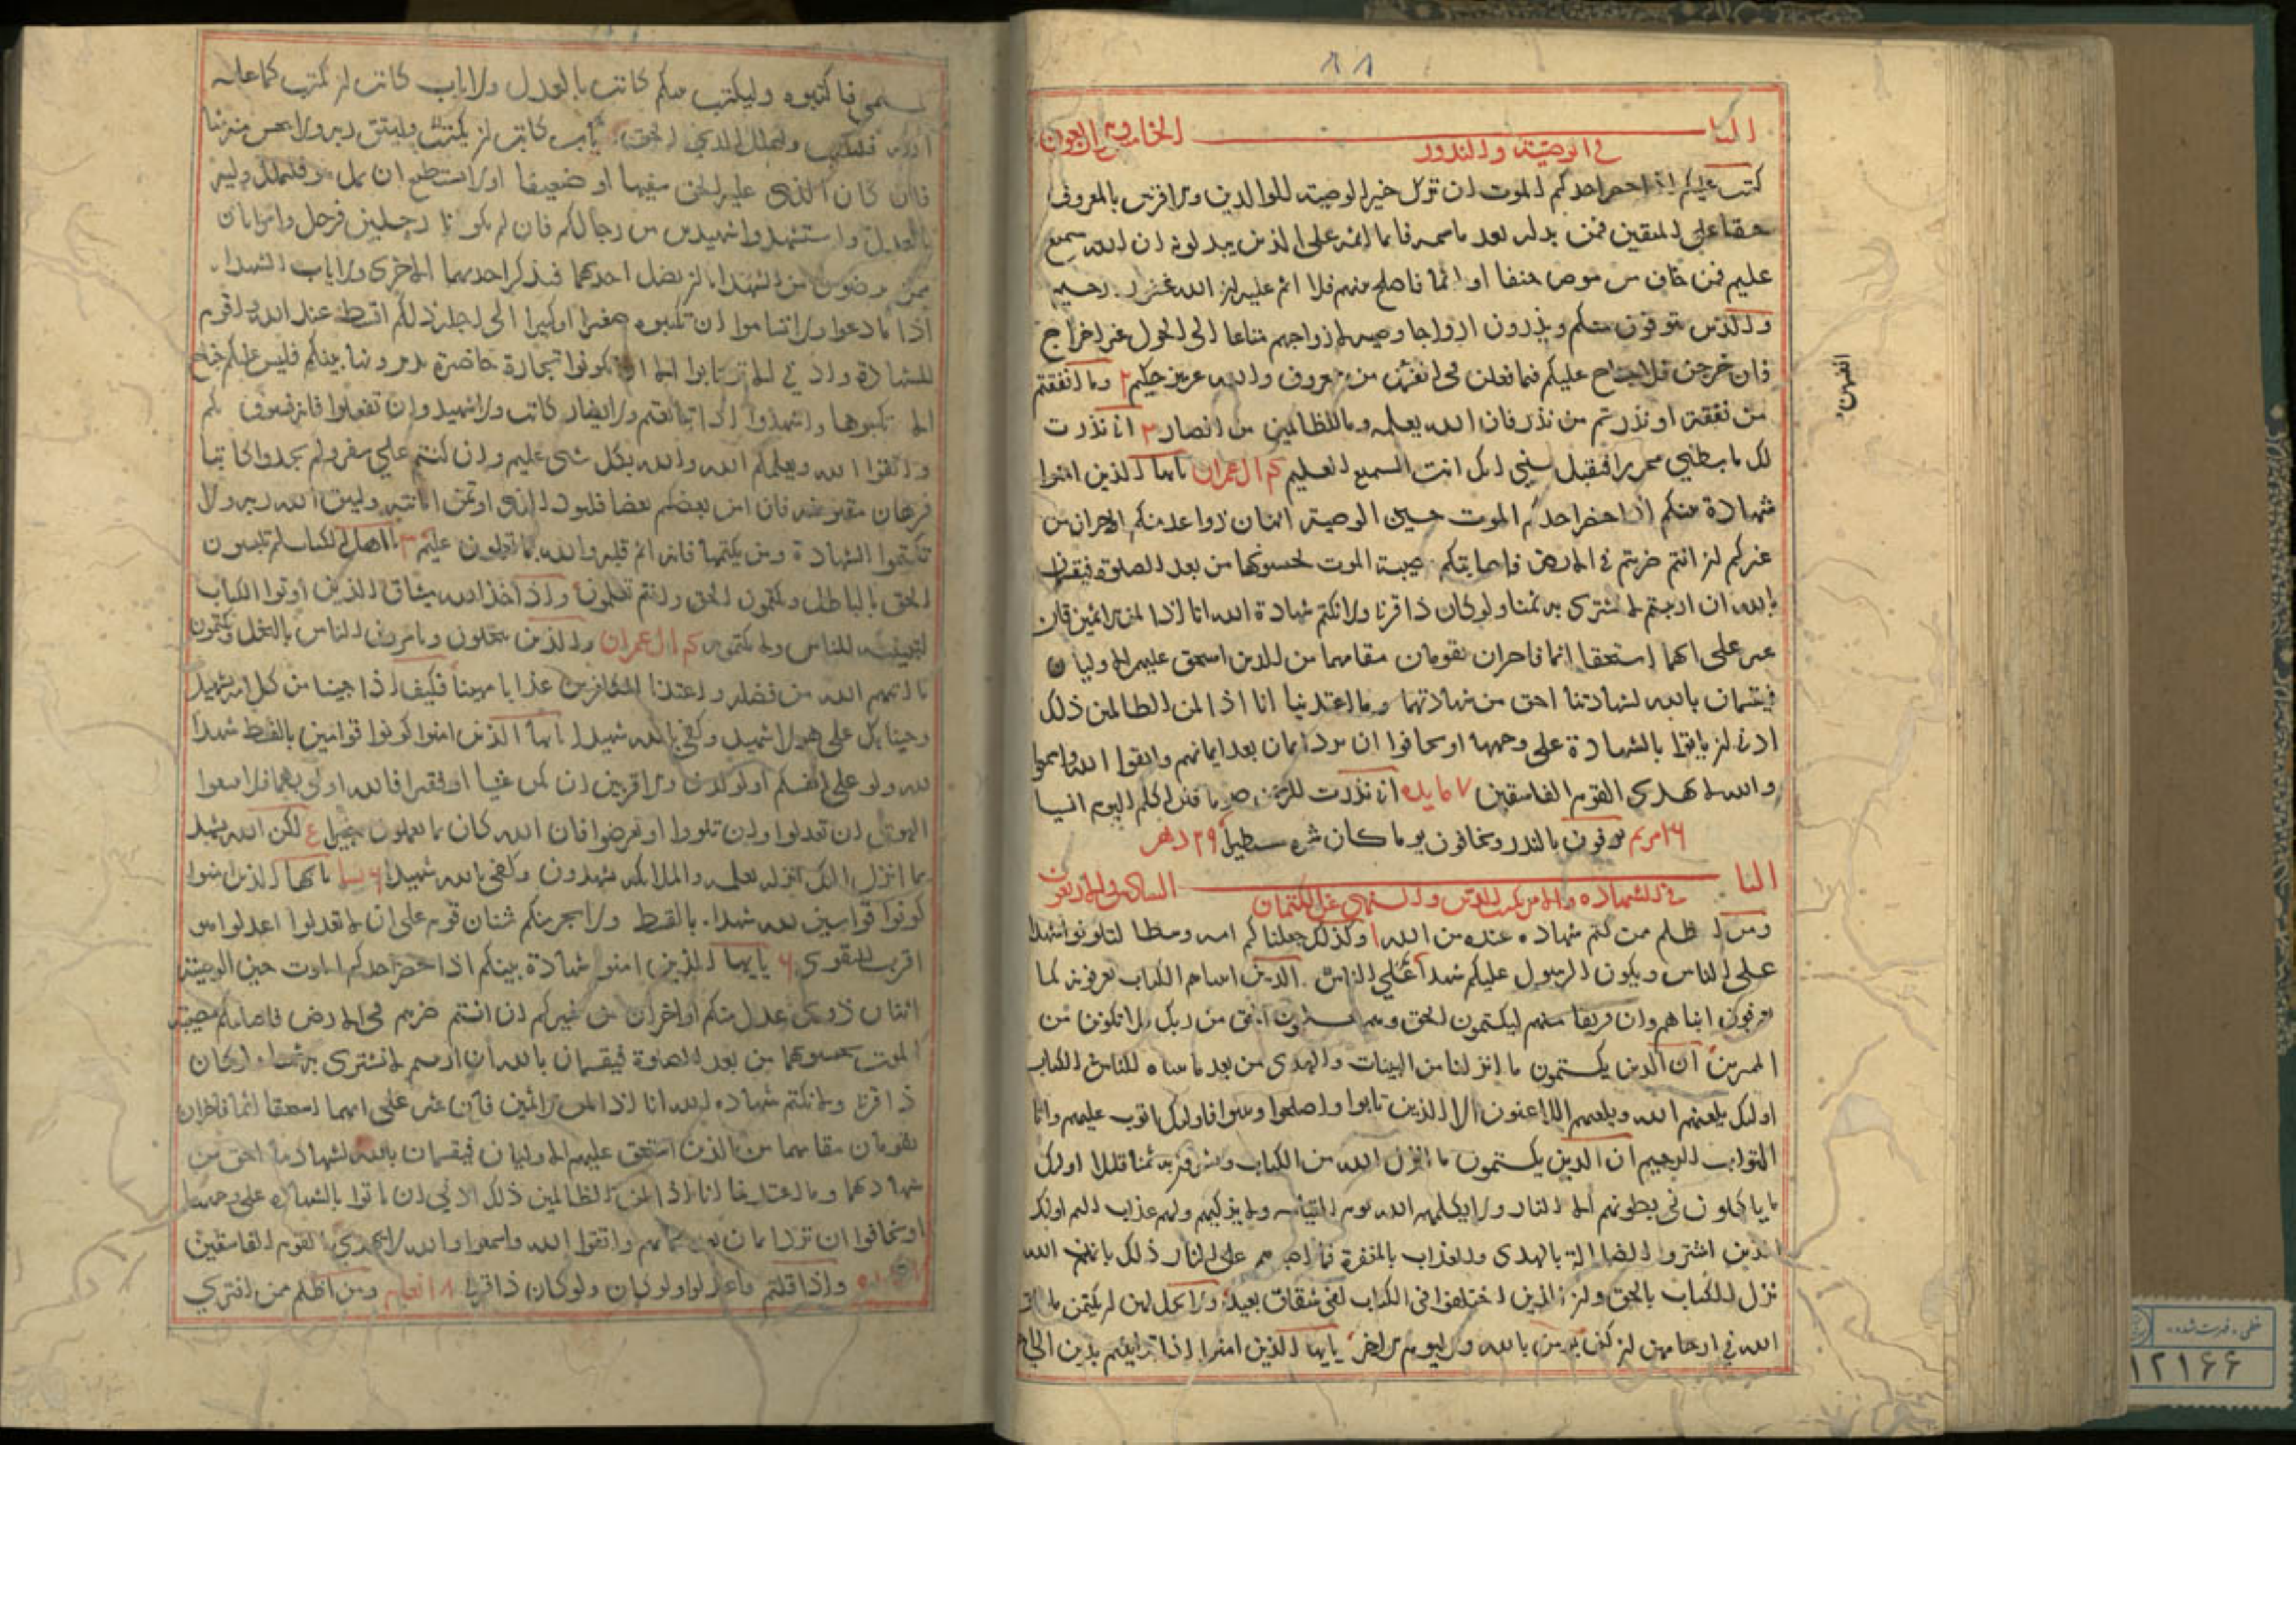 الباب الخامس والاربعون
في الوصية والنذور
كتب عليكم اذا حضر احدكم الموت ان ترك خيرا الوصية للوالدين والاقربين بالمعروف
حقا على المتقين فمن بدله بعد ما سمعه فانما اثمه على الذين يبدلونه ان الله سميع
عليم فمن خاف من موص جنفا او اثما فاصلح بينهم فلا اثم عليه ان الله غفور رحيم
والذين يتوفون منكم ويذرون ازواجا وصية لازواجهم متاعا الى الحول غير اخراج
فان خرجن فلا جناح عليكم فيما فعلن في انفسهن من معروف والله عزيز حكيم ٢ وما انفقتم
من نفقة او نذرتم من نذر فان الله يعلمه وما للظالمين من انصار ٢ اني نذرت
لك ما بطني محررا فتقبل مني انك انت السميع العليم ٣ ال عمران يايها الذين امنوا
شهادة بينكم اذا حضر احدكم الموت حين الوصية اثنان ذوا عدل منكم او اخران من
غيركم ان انتم ضربتم في الارض فاصابتكم مصيبة الموت تحبسونهما من بعد الصلوة فيقسمان
بالله ان ارتبتم لا نشتري به ثمنا ولو كان ذا قربى ولا نكتم شهادة الله انا اذا لمن الاثمين فان
عثر على انهما استحقا اثما فاخران يقومان مقامهما من الذين استحق عليهم الاوليان
فيقسمان بالله لشهادتنا احق من شهادتهما وما اعتدينا انا اذا لمن الظالمين ذلك
ادنى ان ياتوا بالشهادة على وجهها او يخافوا ان ترد ايمان بعد ايمانهم واتقوا الله واسمعوا
والله لا يهدي القوم الفاسقين ٧ مايده اني نذرت للرحمن صوما فلن اكلم اليوم انسيا
١٦ مريم يوفون بالنذر ويخافون يوما كان شره مستطيرا ٢٩ دهر
الباب السادس والاربعون
في الشهادة والامر بكتب الدين والنهي عن الكتمان
ومن اظلم ممن كتم شهادة عنده من الله ١ وكذلك جعلناكم امة وسطا لتكونوا شهدا
على الناس ويكون الرسول عليكم شهيدا على الناس الذين اتيناهم الكتاب يعرفونه كما
يعرفون ابناهم وان فريقا منهم ليكتمون الحق وهم يعلمون الحق من ربك فلا تكونن من
الممترين ان الذين يكتمون ما انزلنا من البينات والهدى من بعد ما بيناه للناس في الكتاب
اولئك يلعنهم الله ويلعنهم اللاعنون الا الذين تابوا واصلحوا وبينوا فاولئك اتوب عليهم وانا
التواب الرحيم ان الذين يكتمون ما انزل الله من الكتاب ويشترون به ثمنا قليلا اولئك
ما ياكلون في بطونهم الا النار ولا يكلمهم الله يوم القيامة ولا يزكيهم ولهم عذاب اليم اولئك
الذين اشتروا الضلالة بالهدى والعذاب بالمغفرة فما اصبرهم على النار ذلك بان الله
نزل الكتاب بالحق وان الذين اختلفوا في الكتاب لفي شقاق بعيد ولا يحل لهن ان يكتمن ما خلق
الله في ارحامهن ان كن يومن بالله واليوم الاخر يايها الذين امنوا اذا تداينتم بدين الى اجل
مسمى فاكتبوه وليكتب بينكم كاتب بالعدل ولا ياب كاتب ان يكتب كما علمه
الله فليكتب وليملل الذي عليه الحق وليتق الله ربه ولا يبخس منه شيئا
فان كان الذي عليه الحق سفيها او ضعيفا او لا يستطيع ان يمل هو فليملل وليه
بالعدل واستشهدوا شهيدين من رجالكم فان لم يكونا رجلين فرجل وامراتان
ممن ترضون من الشهدا ان تضل احدهما فتذكر احديهما الاخرى ولا ياب الشهدا
اذا ما دعوا ولا تساموا ان تكتبوه صغيرا او كبيرا الى اجله ذلكم اقسط عند الله واقوم
للشهادة وادنى الا ترتابوا الا ان تكونوا تجارة حاضرة تديرونها بينكم فليس عليكم جناح
الا تكتبوها واشهدوا اذا تبايعتم ولا يضار كاتب ولا شهيد وان تفعلوا فانه فسوق بكم
واتقوا الله ويعلمكم الله والله بكل شي عليم وان كنتم على سفر ولم تجدوا كاتبا
فرهان مقبوضة فان امن بعضكم بعضا فليود الذي اوتمن امانته وليتق الله ربه ولا
تكتموا الشهادة ومن يكتمها فانه اثم قلبه والله بما تعملون عليم ٣ يا اهل الكتاب لم تلبسون
الحق بالباطل وتكتمون الحق وانتم تعلمون واذ اخذ الله ميثاق الذين اوتوا الكتاب
لتبيننه للناس ولا تكتمونه ٣ ال عمران والذين يبخلون ويامرون الناس بالبخل ويكتمون
ما اتيهم الله من فضله واعتدنا للكافرين عذابا مهينا فكيف اذا جينا من كل امة بشهيد
وجينا بك على هولا شهيد وكفى بالله شهيدا يايها الذين امنوا كونوا قوامين بالقسط شهدا
لله ولو على انفسكم او الوالدين والاقربين ان يكن غنيا او فقيرا فالله اولى بهما فلا تتبعوا
الهوى ان تعدلوا وان تلووا او تعرضوا فان الله كان بما تعملون خبيرا ع لكن الله يشهد
بما انزل اليك انزله بعلمه والملائكة يشهدون وكفى بالله شهيدا ٦ نسا يايها الذين امنوا
كونوا قوامين لله شهدا بالقسط ولا يجرمنكم شنان قوم على ان لا تعدلوا اعدلوا هو
اقرب للتقوى ٦ يايها الذين امنوا شهادة بينكم اذا حضر احدكم الموت حين الوصية
اثنان ذوى عدل منكم او اخران من غيركم ان انتم ضربتم في الارض فاصابتكم مصيبة
الموت تحبسونهما من بعد الصلوة فيقسمان بالله ان ارتبتم لا نشتري به ثمنا ولو كان
ذا قربى ولا نكتم شهادة الله انا اذا لمن الاثمين فان عثر على انهما استحقا اثما فاخران
يقومان مقامهما من الذين استحق عليهم الاوليان فيقسمان بالله لشهادتنا احق من
شهادتهما وما اعتدينا انا اذا لمن الظالمين ذلك ادنى ان ياتوا بالشهادة على وجهها
او يخافوا ان ترد ايمان بعد ايمانهم واتقوا الله واسمعوا والله لا يهدي القوم الفاسقين
واذا قلتم فاعدلوا ولو كان ولو كان ذا قربى ٨ انعام ومن اظلم ممن افترى
خطی فهرست شده
١٢١٦۶